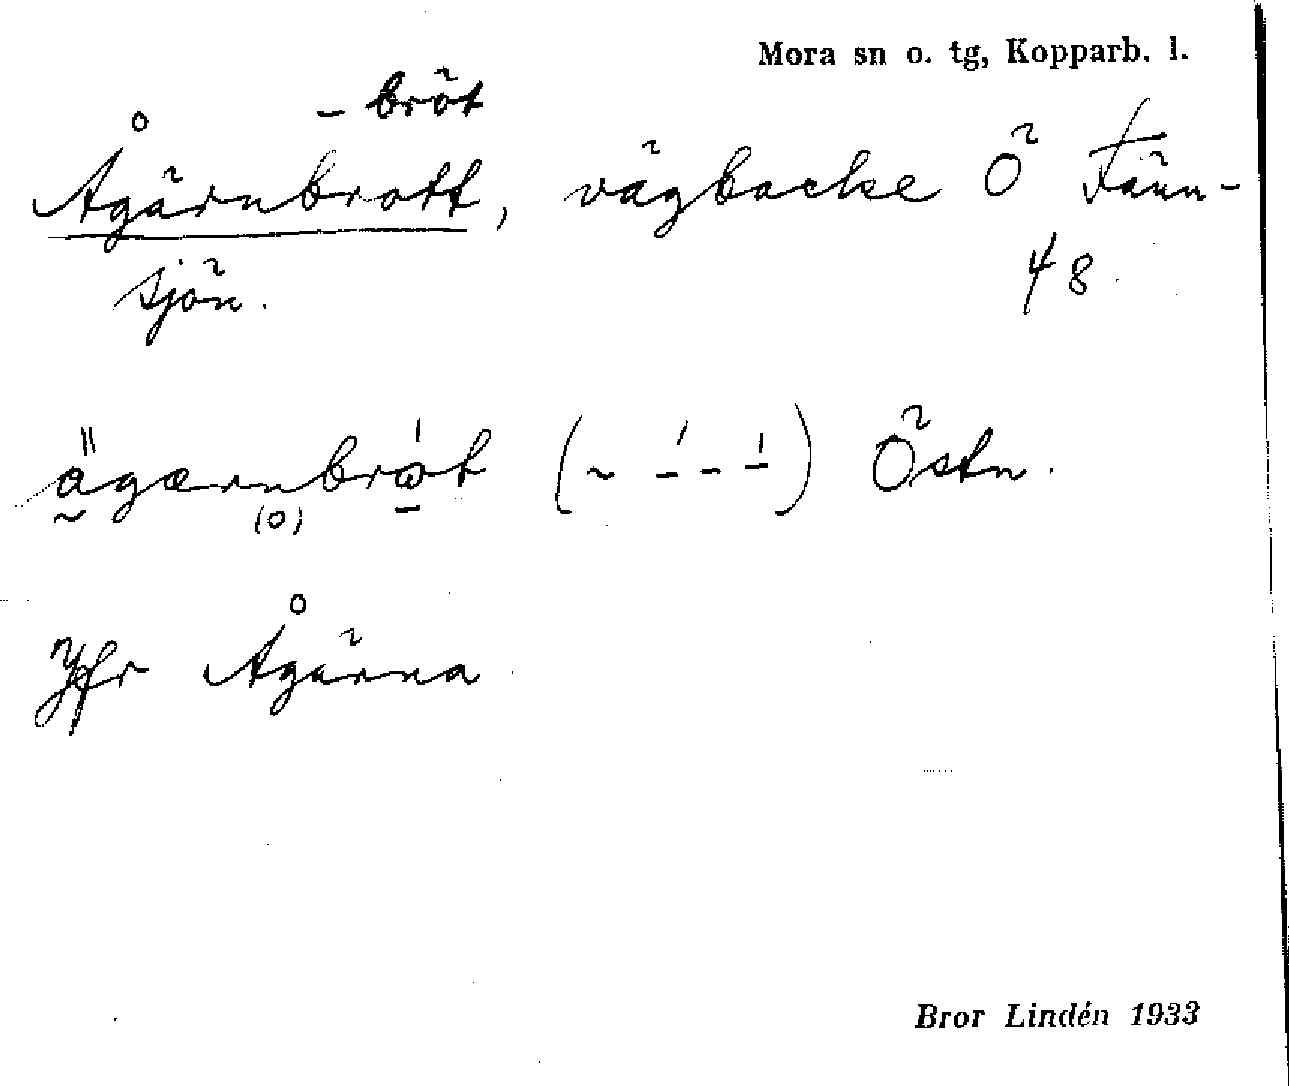 Mora sn o. tg, Kopparb. l.
-bröt
Ågärnbrott, vägbacke Ö Fänn-
sjön. 48.
Östn.
Jfr Ågärna
Bror Lindén 1933